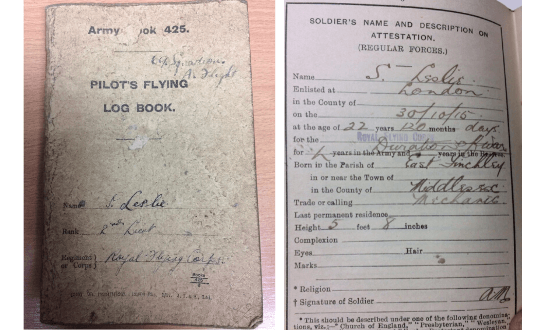 Army Book 425.
A Flight
PILOT'S FLYING
LOG BOOK.
Name S. Leslie
Rank 2nd Lieut
Regiment or Corps Royal Flying Corps.
SOLDIER'S NAME AND DESCRIPTION ON
ATTESTATION.
(REGULAR FORCES.)
Name S. Leslie
Enlisted at London
in the County of
on the 30/10/15
at the age of 22 years 120 months days
for the ROYAL FLYING Duration of War
for years in the Army and years in the Reserve.
Born in the Parish of East Finchley
in or near the Town of
in the County of Middlesex
Trade or calling Mechanic
Last permanent residence
Height 5 feet 8 inches
Complexion
Eyes Hair
Marks
* Religion
† Signature of Soldier
* This should be described under one of the following denomina-
tions, viz.:—"Church of England," "Presbyterian," "Wesleyan,